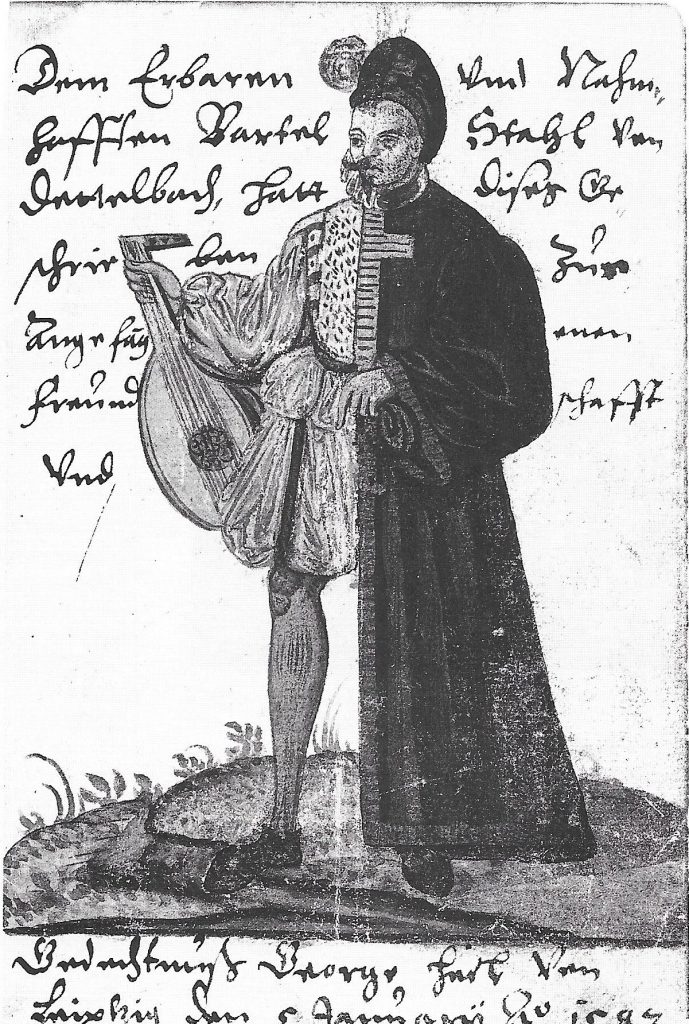 Dem Erbaren Vnd Nahm,
hafften Bartel Stahl Von
Dettelbach, hatt dises Ge
schrie ben Zur
Angefüg enen
freund schafft
Vnd
Gedechtnüß George Von
Leipzig den 5 Januarÿ Aº